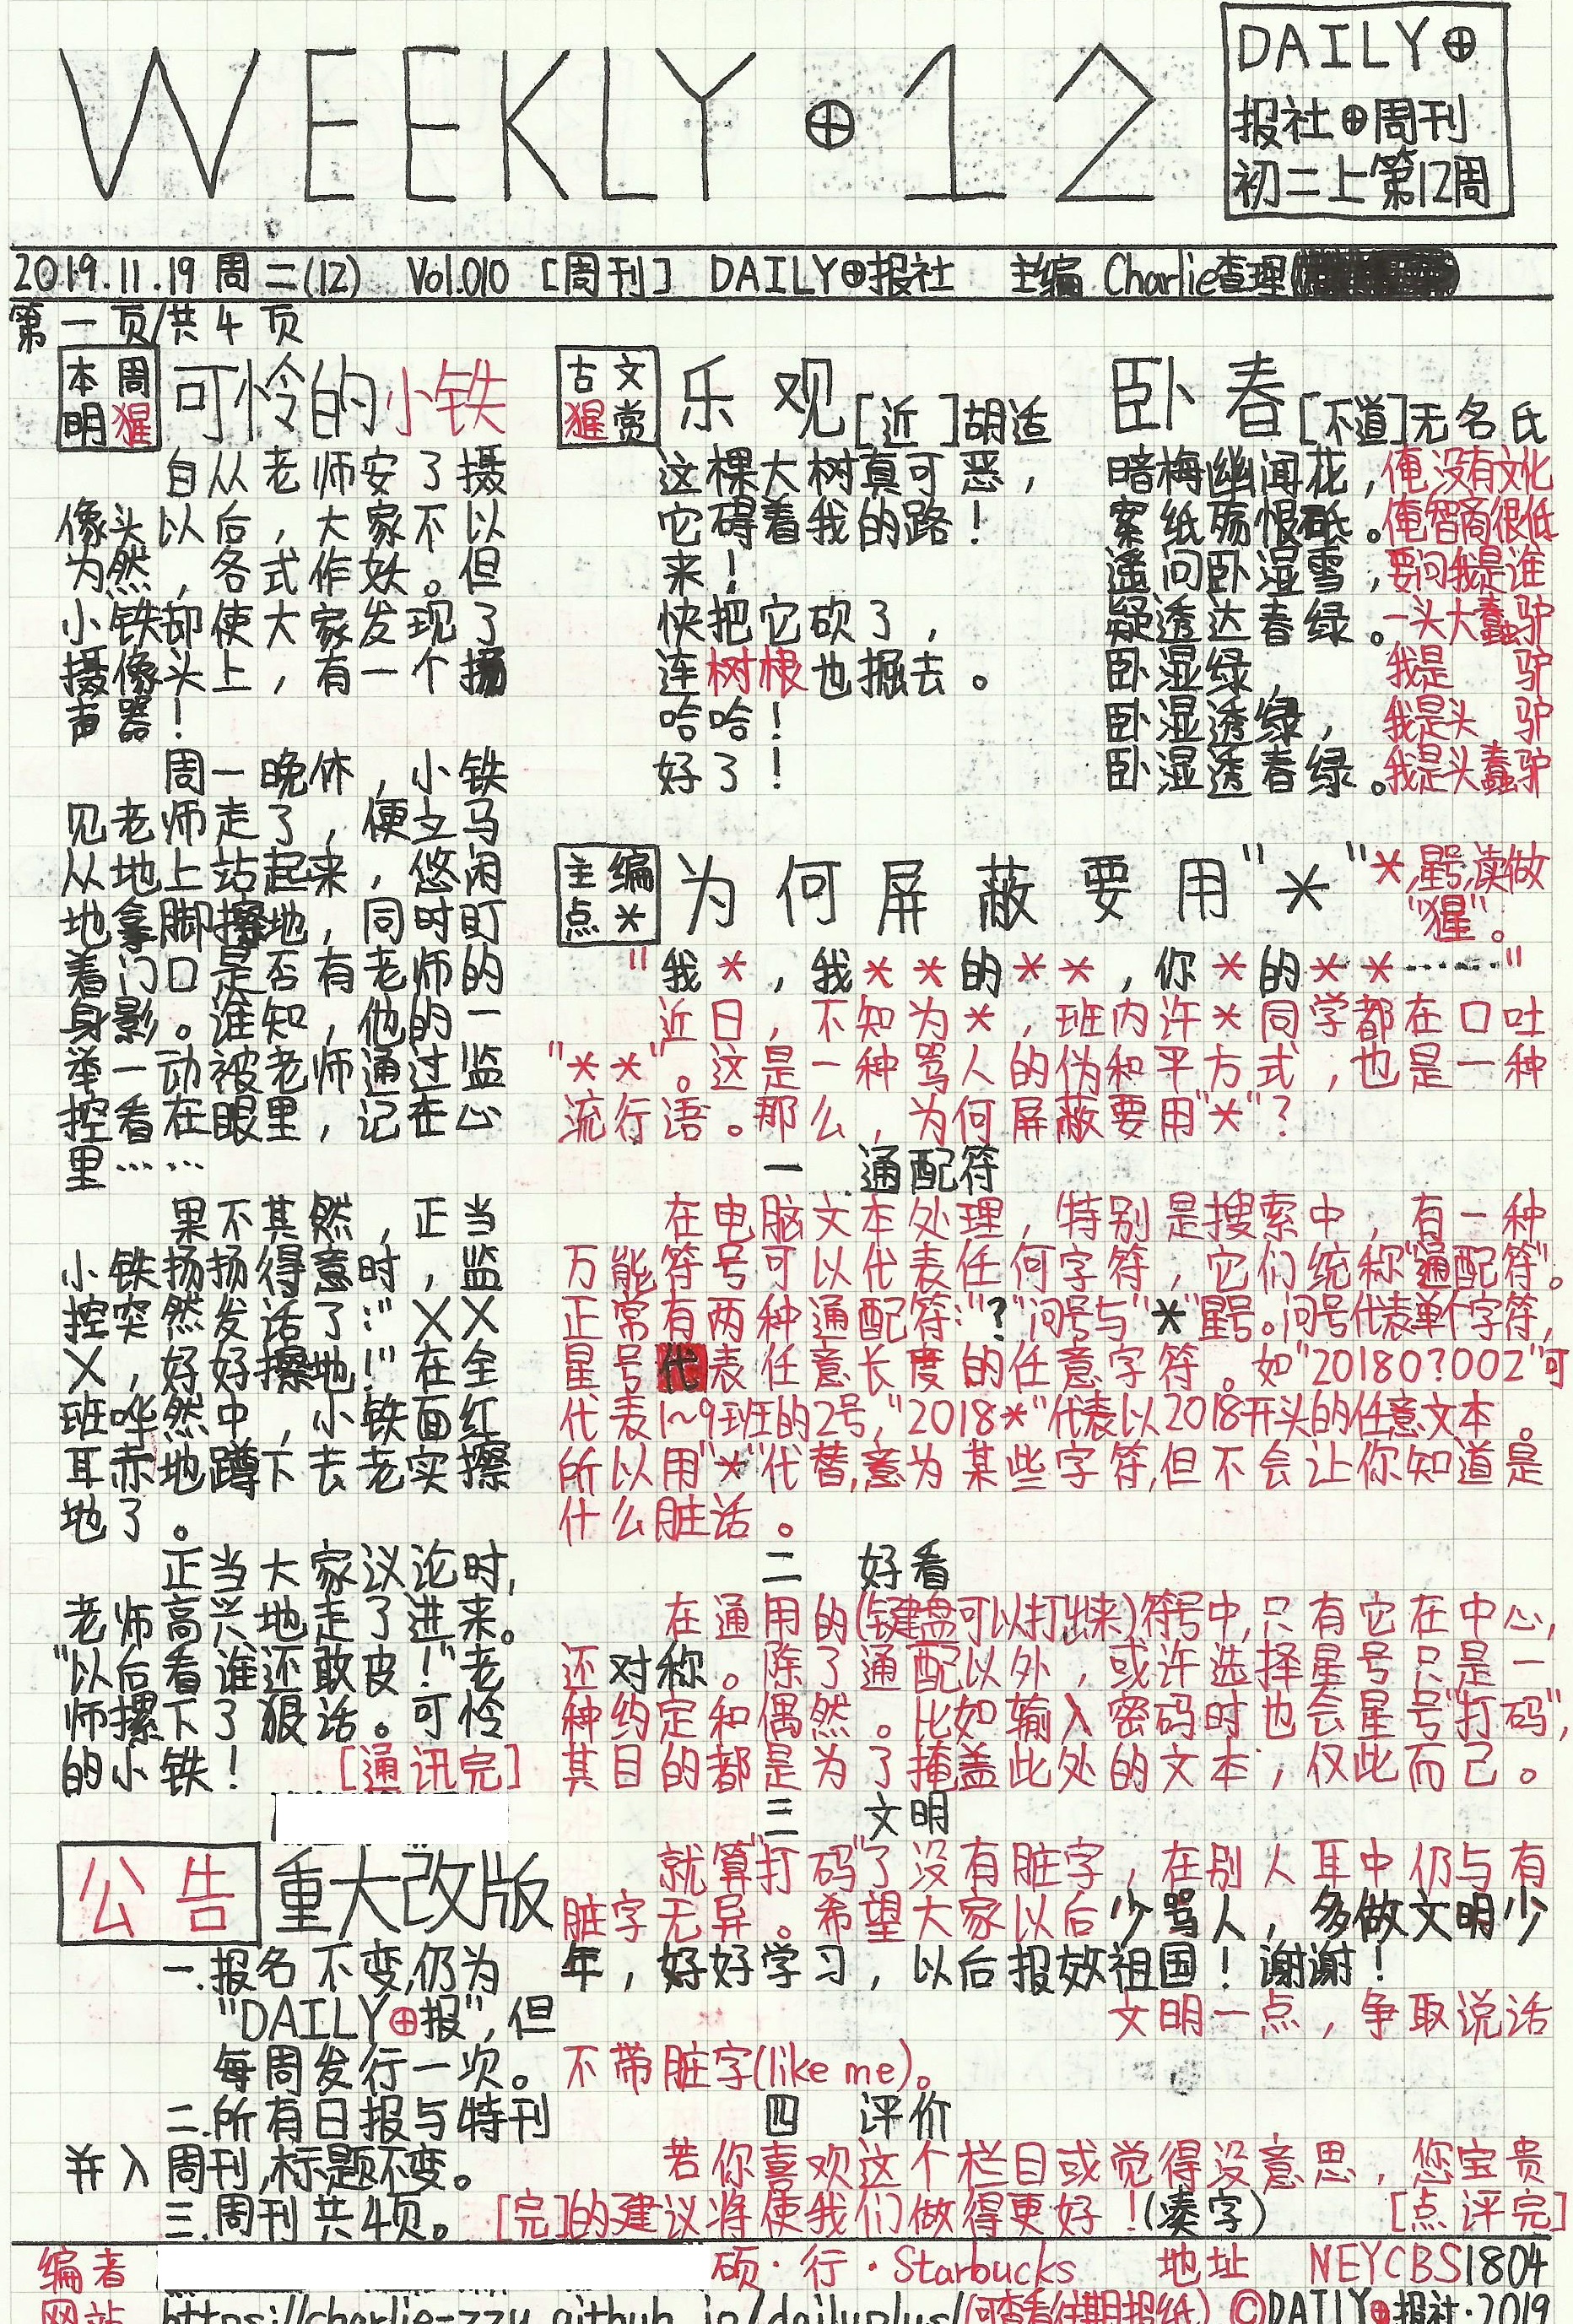 WEEKLY ⊕ 12
DAILY⊕
报社⊕周刊
初二上第12周
2019.11.19 周二(12) Vol.010 [周刊] DAILY⊕报社 主编 Charlie查理
第一页/共4页
本周
明猩
可怜的小铁
自从老师安了摄
像头以后，大家不以
为然，各式作妖。但
小铁却使大家发现了
摄像头上，有一个扬
声器！
周一晚休，小铁
见老师走了，便立马
从地上站起来，悠闲
地拿脚擦地，同时盯
着门口是否有老师的
身影。谁知，他的一
举一动被老师通过监
控看在眼里，记在心
里……
果不其然，正当
小铁扬扬得意时，监
控突然发话了："XX
X，好好擦地！"在全
班哗然中，小铁面红
耳赤地蹲下去老实擦
地了。
正当大家议论时，
老师高兴地走了进来。
"以后看谁还敢皮！"老
师摞下了狠话。可怜
的小铁！ [通讯完]
公告
重大改版
一.报名不变,仍为
"DAILY⊕报",但
每周发行一次。
二.所有日报与特刊
并入周刊,标题不变。
三.周刊共4页。 [完]
古文
猩赏
乐观 [近]胡适
这棵大树真可恶，
它碍着我的路！
来！
快把它砍了，
连树根也掘去。
哈哈！
好了！
卧春 [不道]无名氏
暗梅幽闻花，俺没有文化
案纸殇恨砥。俺智商很低
遥问卧湿雪，要问我是谁
疑透达春绿。一头大蠢驴
卧湿绿， 我是 驴
卧湿透绿， 我是头 驴
卧湿透春绿。我是头蠢驴
主编
点*
为何屏蔽要用"*"
*,星号,读做
"猩"。
"我*，我**的**，你*的**……"
近日，不知为*，班内许*同学都在口吐
"**"。这是一种骂人的伪和平方式，也是一种
流行语。那么，为何屏蔽要用"*"？
一 通配符
在电脑文本处理，特别是搜索中，有一种
万能符号可以代表任何字符，它们统称"通配符"。
正常有两种通配符："?"问号与"*"星号。问号代表单个字符，
星号代表任意长度的任意字符。如"20180?002"可
代表1~9班的2号,"2018*"代表以2018开头的任意文本。
所以用"*"代替,意为某些字符,但不会让你知道是
什么脏话。
二 好看
在通用的(键盘可以打出来)符号中,只有它在中心，
还对称。除了通配以外，或许选择星号只是一
种约定和偶然。比如输入密码时也会星号"打码"，
其目的都是为了掩盖此处的文本，仅此而已。
三 文明
就算"打码"了没有脏字，在别人耳中仍与有
脏字无异。希望大家以后少骂人，多做文明少
年，好好学习，以后报效祖国！谢谢！
文明一点，争取说话
不带脏字(like me)。
四 评价
若你喜欢这个栏目或觉得没意思，您宝贵
的建议将使我们做得更好！(凑字) [点评完]
编者 硕·行·Starbucks 地址 NEYCBS1804
网站 https://charlie-zzy.github.io/dailyplus/(可查看往期报纸) ©DAILY⊕报社·2019